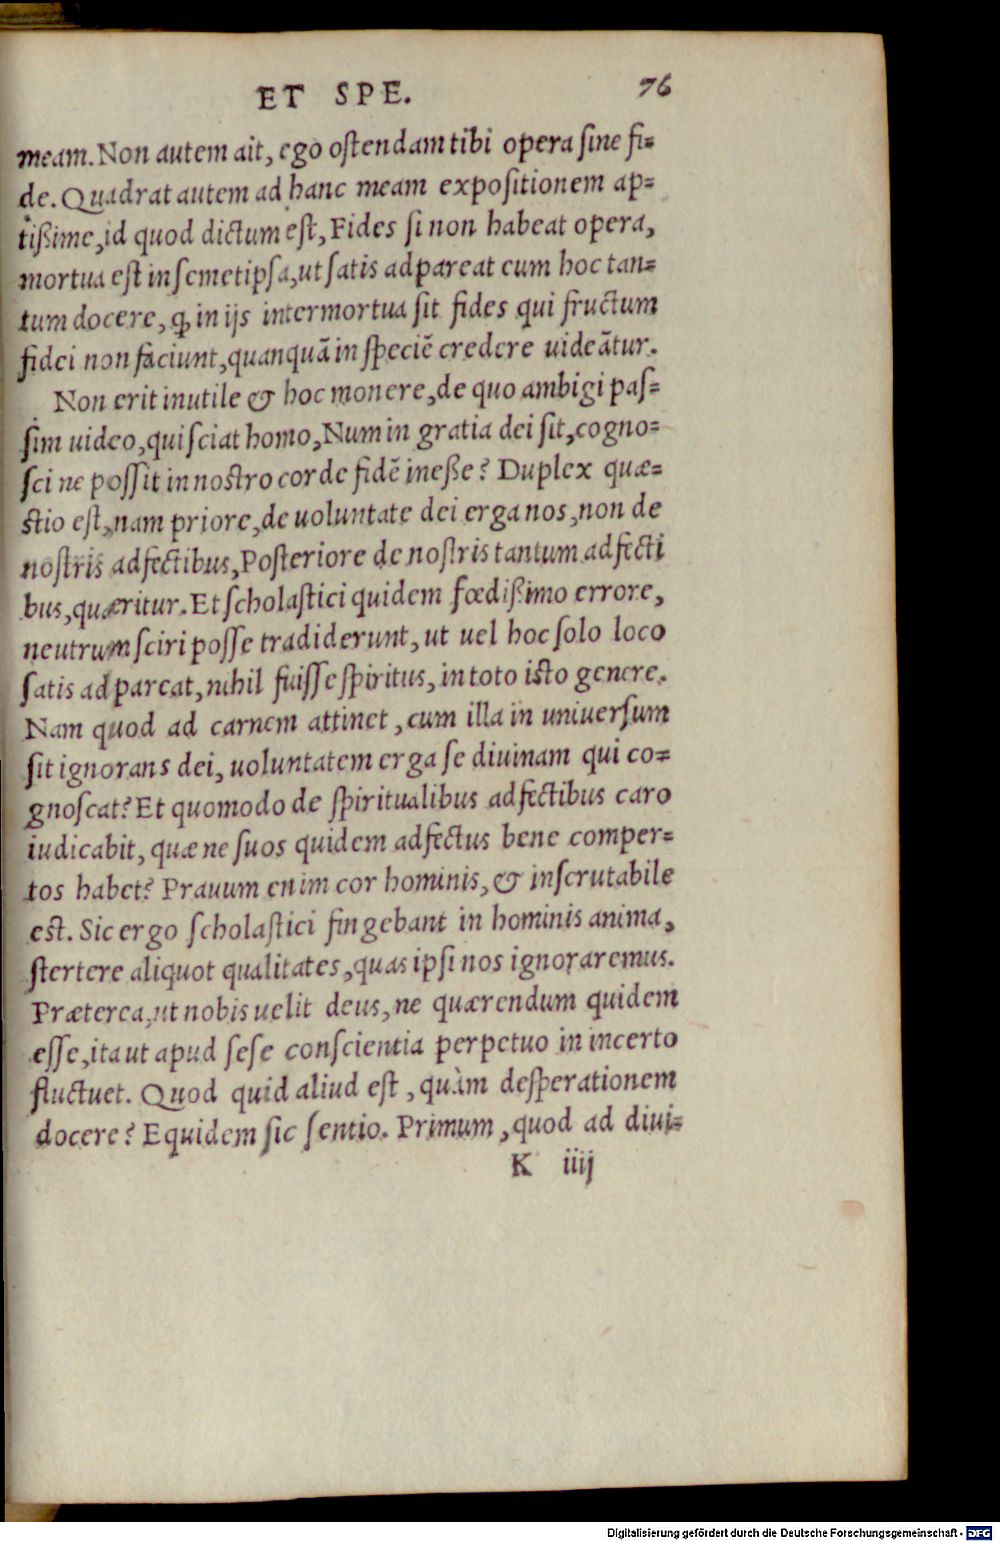 ET SPE. 76
meam. Non autem ait, ego oſtendam tibi opera ſine fi-
de. Quadrat autem ad hanc meam expoſitionem ap-
tißime, id quod dictum eſt, Fides ſi non habeat opera,
mortua eſt in ſemetipſa, ut ſatis adpareat eum hoc tan-
tum docere, ꝙ in ijs intermortua ſit fides qui fructum
fidei non faciunt, quanquā in ſpeciē credere uideātur.
Non erit inutile & hoc monere, de quo ambigi paſ-
ſim uideo, qui ſciat homo, Num in gratia dei ſit, cogno-
ſci ne poſſit in noſtro corde fidē ineße? Duplex quæ-
ſtio eſt, nam priore, de uoluntate dei erga nos, non de
noſtris adfectibus, Poſteriore de noſtris tantum adfecti
bus, quæritur. Et ſcholaſtici quidem fœdißimo errore,
neutrum ſciri poſſe tradiderunt, ut uel hoc ſolo loco
ſatis adpareat, nihil fuiſſe ſpiritus, in toto iſto genere.
Nam quod ad carnem attinet, cum illa in uniuerſum
ſit ignorans dei, uoluntatem erga ſe diuinam qui co-
gnoſcat? Et quomodo de ſpiritualibus adfectibus caro
iudicabit, quæ ne ſuos quidem adfectus bene comper-
tos habet? Prauum enim cor hominis, & inſcrutabile
eſt. Sic ergo ſcholaſtici fingebant in hominis anima,
ſtertere aliquot qualitates, quas ipſi nos ignoraremus.
Præterea, ut nobis uelit deus, ne quærendum quidem
eſſe, ita ut apud ſeſe conſcientia perpetuo in incerto
fluctuet. Quod quid aliud eſt, quàm deſperationem
docere? Equidem ſic ſentio. Primum, quod ad diui-
K iiij
Digitalisierung gefördert durch die Deutsche Forschungsgemeinschaft - DFG